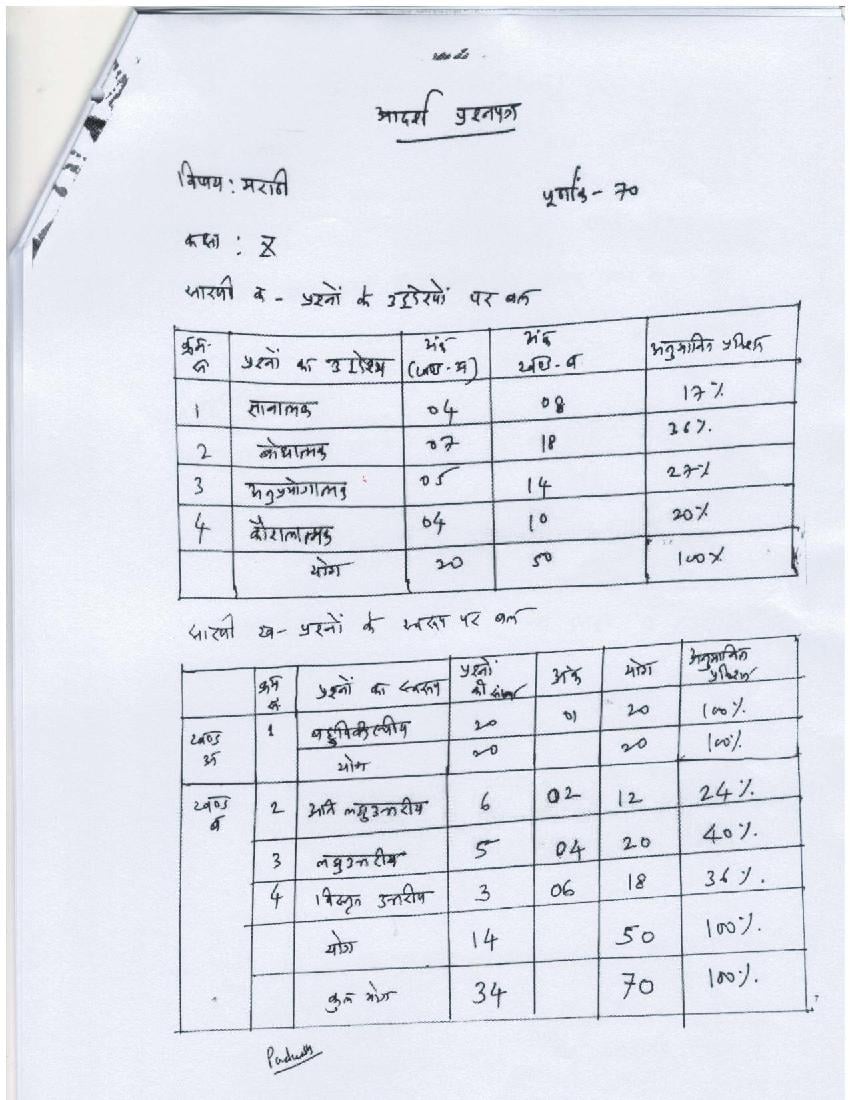 आदर्श प्रश्नपत्र
विषय : मराठी पूर्णांक - 70
कक्षा : X
सारणी क - प्रश्नों के उद्देश्यों पर बल
क्रम-सं प्रश्नों का उद्देश्य अंक (खण्ड-अ) अंक खण्ड-ब अनुमानित प्रतिशत
1 ज्ञानात्मक 04 08 17%
2 बोधात्मक 07 18 36%
3 अनुप्रयोगात्मक 05 14 27%
4 कौशलात्मक 04 10 20%
योग 20 50 100%
सारणी ख - प्रश्नों के स्वरूप पर बल
क्रम सं. प्रश्नों का स्वरूप प्रश्नों की संख्या अंक योग अनुमानित प्रतिशत
खण्ड अ 1 बहुविकल्पीय 20 01 20 100%
योग 20 20 100%
खण्ड ब 2 अति लघुउत्तरीय 6 02 12 24%
3 लघुउत्तरीय 5 04 20 40%
4 विस्तृत उत्तरीय 3 06 18 36%
योग 14 50 100%
कुल योग 34 70 100%